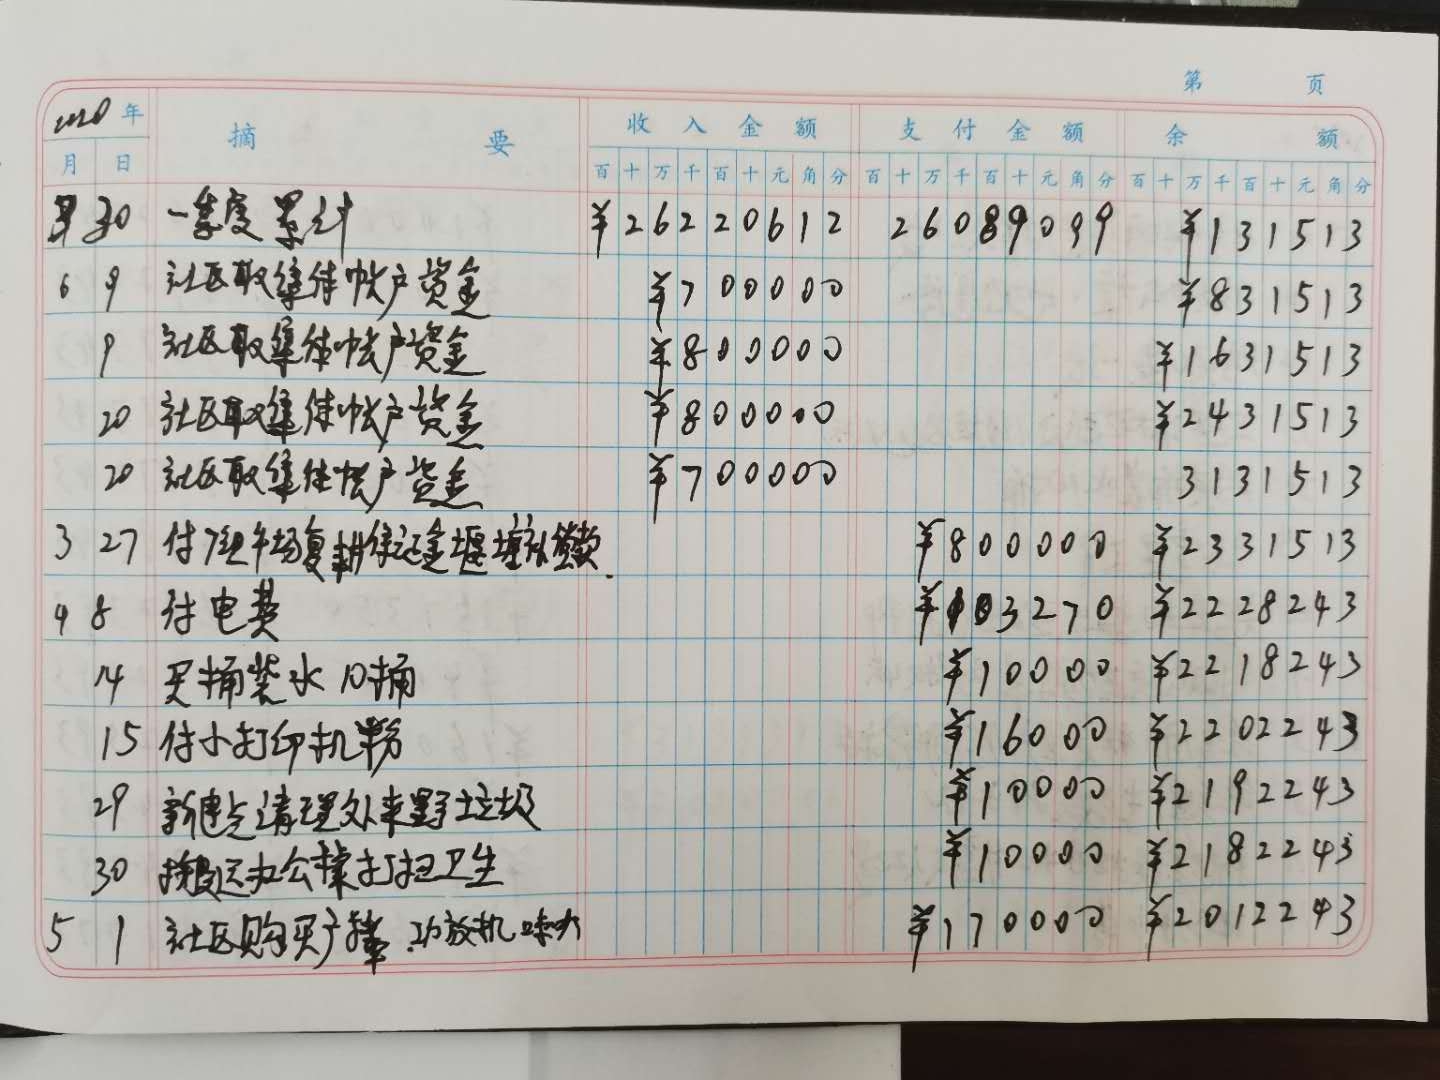 第 页
2020年 摘 要 收入金额 支付金额 余 额
月 日 百十万千百十元角分 百十万千百十元角分 百十万千百十元角分
30 一季度累计 ¥26220612 26089099 ¥131513
6 9 社区取集体帐户资金 ¥700000 ¥831513
9 社区取集体帐户资金 ¥800000 ¥1631513
20 社区取集体帐户资金 ¥800000 ¥2431513
20 社区取集体帐户资金 ¥700000 3131513
3 27 付7组牛场复耕 堰塘补偿款. ¥800000 ¥2331513
4 8 付电费 ¥103270 ¥2228243
14 买桶装水10桶 ¥10000 ¥2218243
15 付小打印机粉 ¥16000 ¥2202243
29 新建点清理外来野垃圾 ¥10000 ¥2192243
30 搬运办公桌打扫卫生 ¥10000 ¥2182243
5 1 社区购买广播.功放机.喇叭 ¥170000 ¥2012243